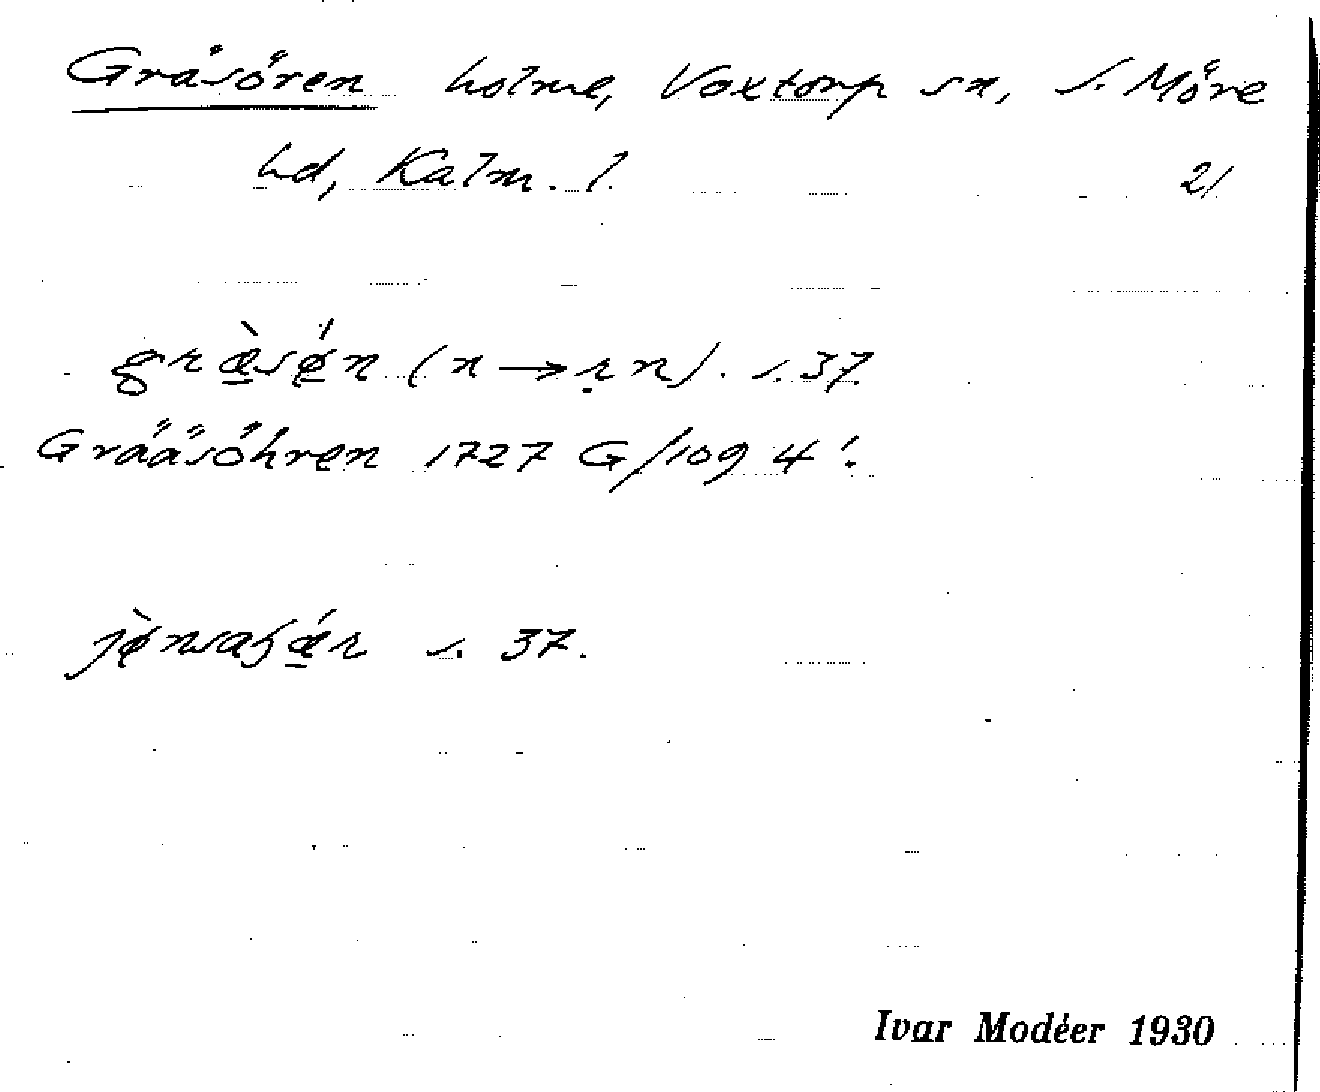 Gräsören holme, Voxtorp sn, S. Möre
hd, Kalm. l. 21
græ̀sǿn (n → rn). s. 37.
Grääsöhren 1727 G/109 4¹.
s. 37.
Ivar Modéer 1930